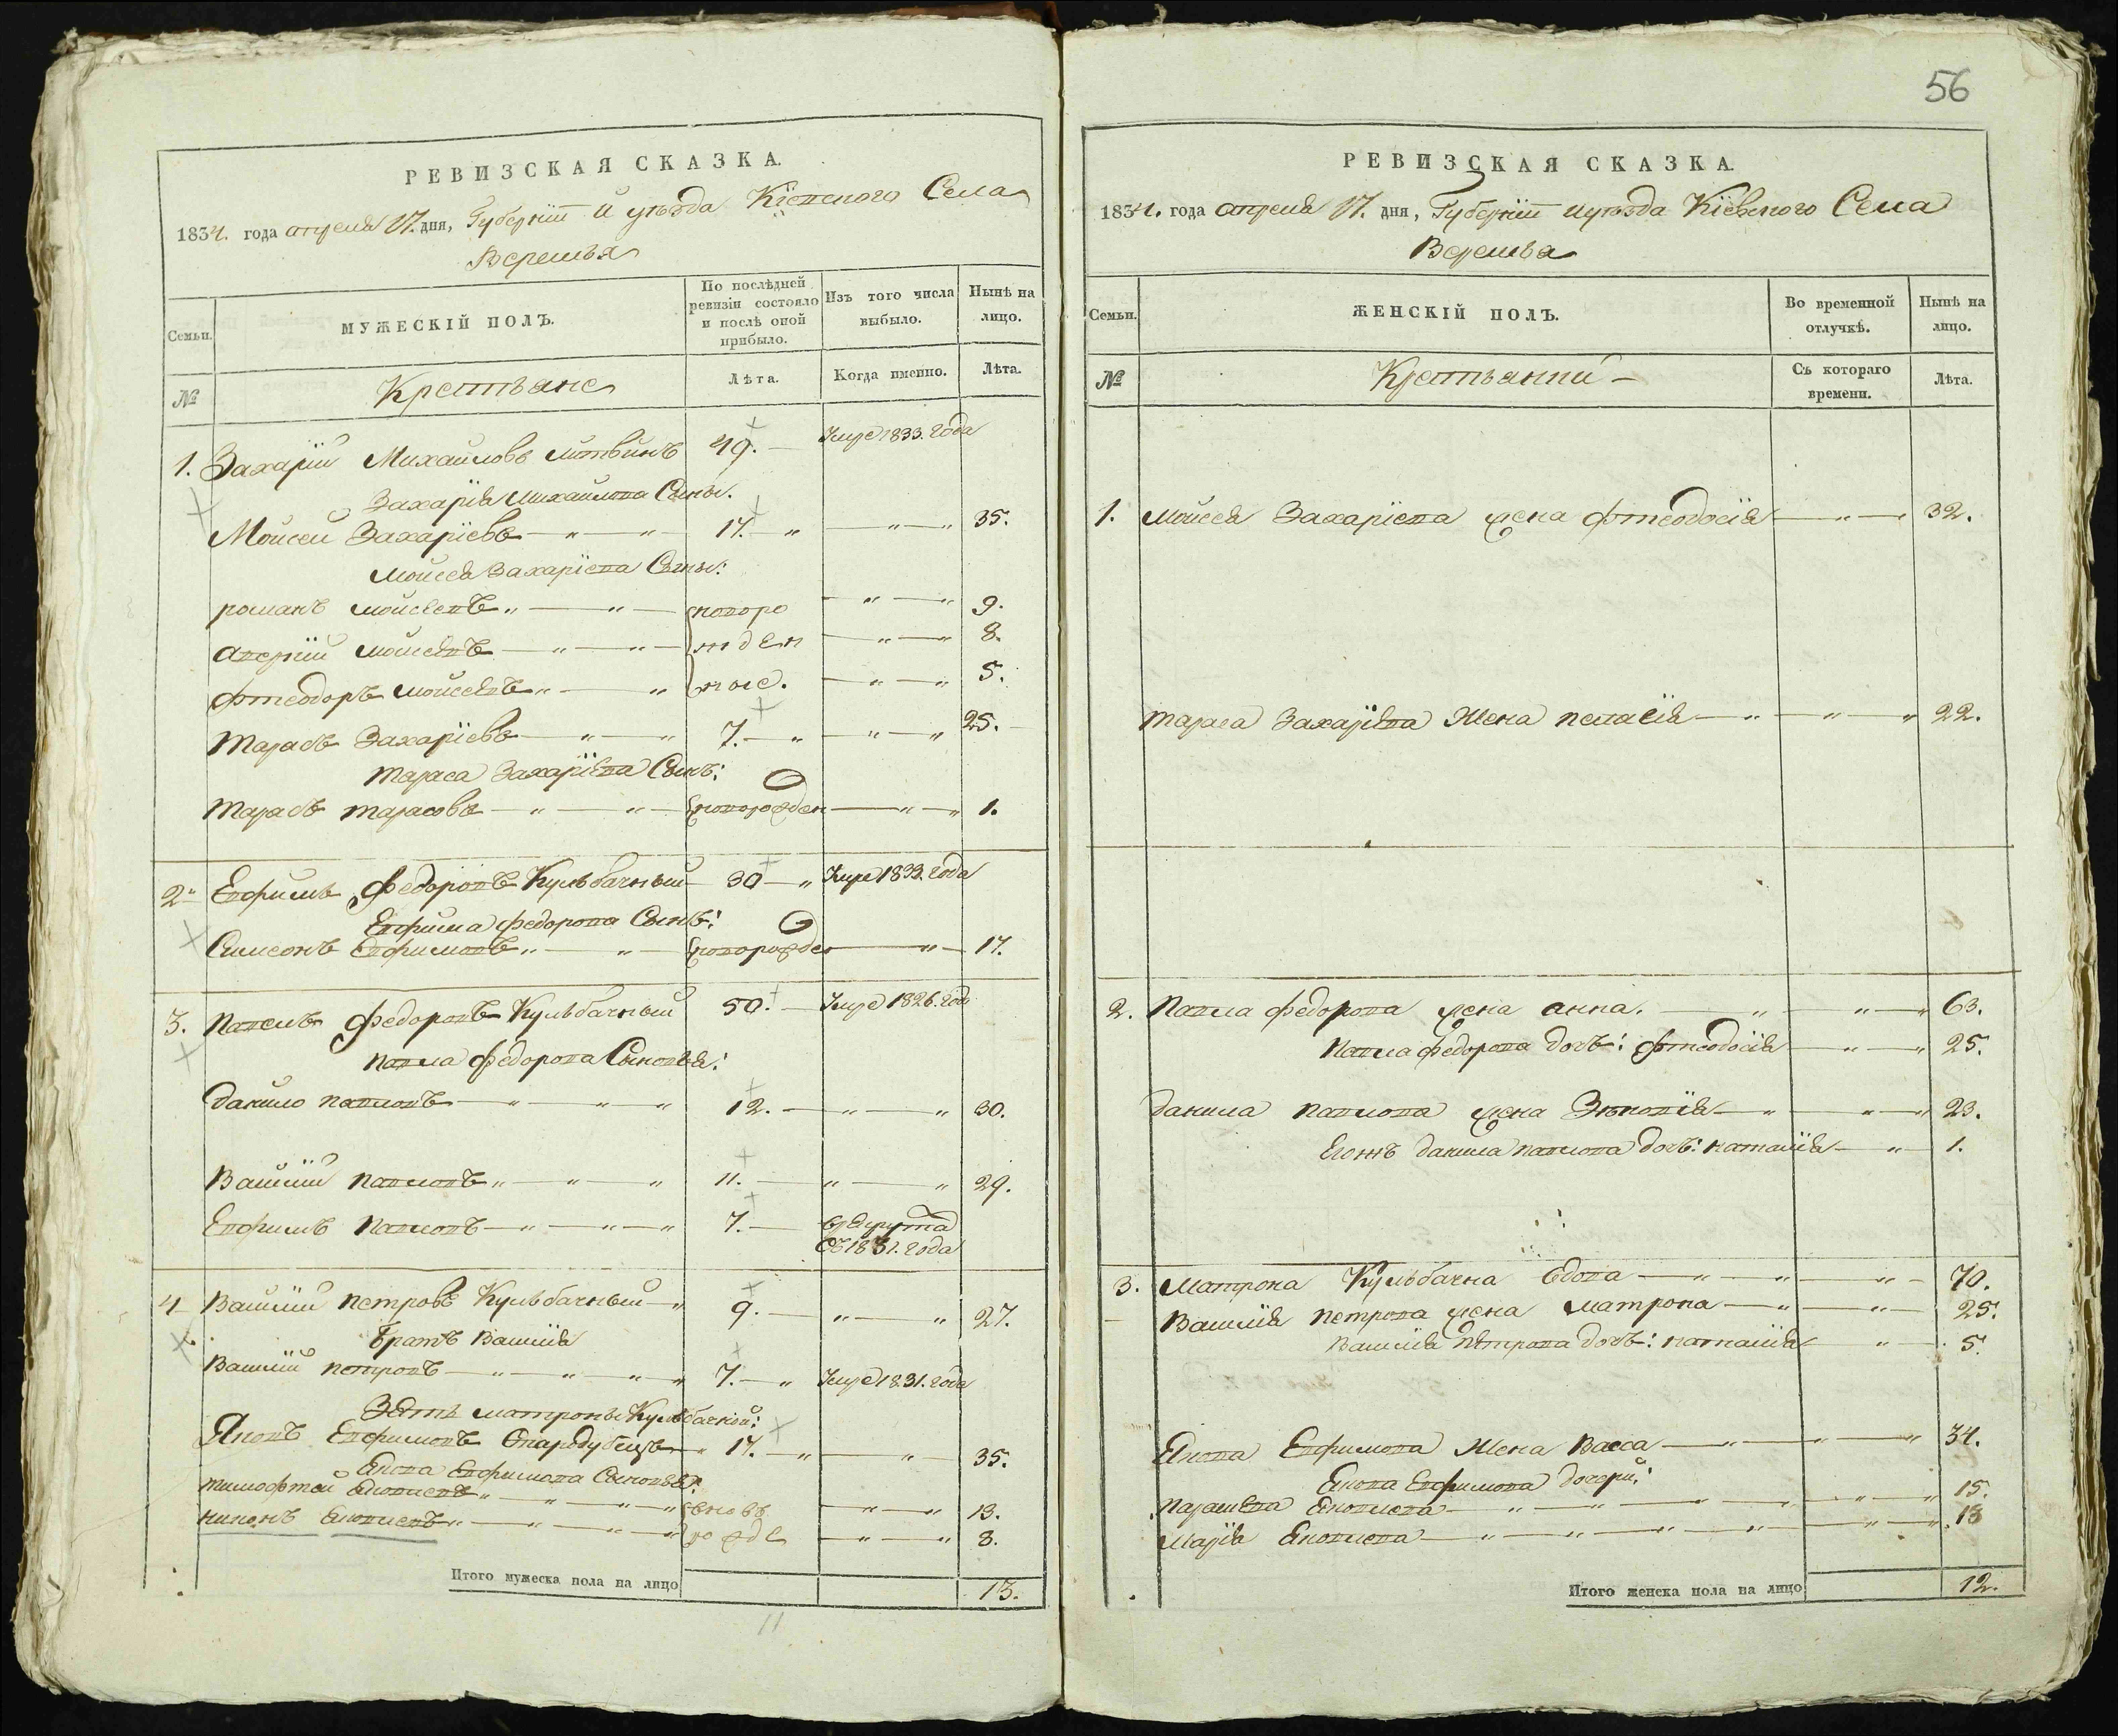 56
РЕВИЗСКАЯ СКАЗКА.
1834. года апреля 17. дня, Губернiи и уезда Кiевского Села
Веремья
Семьи.
МУЖЕСКІЙ ПОЛЪ.
По послѣдней ревизіи состояло и послѣ оной прибыло.
Изъ того числа выбыло.
Нынѣ на лицо.
№
Крестьяне
Лѣта.
Когда именно.
Лѣта.
1. Захарiй Михайловъ Литвинъ 49. Умре 1833. года
Захарiя Михайлова Сыны.
Мойсей Захарiевъ 17. 35.
Мойсея Захарiева Сыны:
романъ мойсеевъ новоро 9.
аверкiй мойсеевъ жден 8.
фтеодоръ мойсеевъ ные. 5.
Тарасъ Захарiевъ 7. 25.
Тараса Захарiева Сынъ:
Тарасъ тарасовъ новорожден 1.
2 Евфимъ Федоровъ Кульбачный 30 Умре 1833. года
Евфима федорова Сынъ:
Симеонъ Евфимовъ новорожден 17.
3. Павелъ федоровъ Кульбачный 50. Умре 1826. года
павла федорова Сыновья:
данило павловъ 12. 30.
Василiй павловъ 11. 29.
Евфимъ павловъ 7. врекрута
съ 1831. года
4 Василiй петровъ Кульбачный 9. 27.
братъ Василiя
Василiй петровъ 7. Умре 1831. года
Зять матроны Кульбачной:
Яковъ Евфимовъ Стародубецъ 17. 35.
Якова Евфимова Сыновья:
тимофтей Яковлевъ вновь 13.
никонъ Яковлевъ рожде 8.
Итого мужеска пола на лицо 13.
11
РЕВИЗСКАЯ СКАЗКА.
1834. года апреля 17. дня, Губернiи и уезда Кiевского Села
Веремья
Семьи.
ЖЕНСКІЙ ПОЛЪ.
Во временной отлучкѣ.
Нынѣ на лицо.
№
Крестьянки
Съ котораго времени.
Лѣта.
1. Мойсея Захарiева жена фтеодосiя 32.
Тараса Захарiева Жена пелагiя 22.
2. Павла федорова жена анна. 63.
Павла федорова дочь: фтеодосiя 25.
данила павлова жена Зѣновiя 23.
Егожъ данила павлова дочь: наталiя 1.
3. Матрона Кульбачна вдова 70.
Василiя петрова жена матрона 25.
Василiя петрова дочь: наталiя 5.
Якова Евфимова Жена Васса 34.
Якова Евфимова дочери:
параскева Яковлева 15.
Марiя Яковлева 13
Итого женска пола на лицо 12.